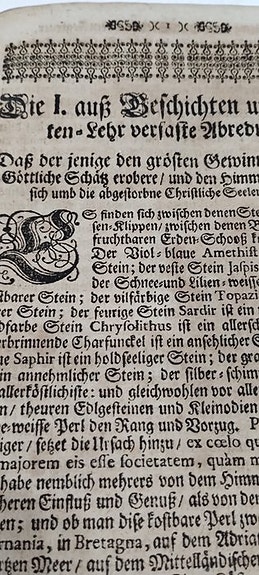 ) I (
Die I. auß Geschichten u
ten-Lehr verfaste Abred
Daß der jenige den grösten Gewinn
Göttliche Schätz erobere / und den Himm
sich umb die abgestorbne Christliche Seelen
ES finden sich zwischen denen Ste
sen-Klippen / zwischen denen
fruchtbaren Erden-Schooß
Der Viol-blaue Amethist
Stein; der veste Stein Jaspis
der Schnee-und Lilien-weisse
barer Stein; der vilfärbige Stein Topazi
er Stein; der feurige Stein Sardir ist ein
dfarbe Stein Chrysolithus ist ein allersch
erbrinnende Charfunckel ist ein ansehlicher S
ue Saphir ist ein holdseeliger Stein; der gra
in annemlicher Stein; der silber-schim
allerköstlichiste: und gleichwohlen vor alle
n / theuren Edlgesteinen und Kleinodien
e-weisse Perl den Rang und Vorzug. P
iger / setzet die Ursach hinzu / ex cœlo qu
majorem eis esse societatem, quàm m
habe nemblich mehrers von dem Himm
heren Einfluß und Genuß / als von de
en; und ob man dise kostbare Perl zw
rnania, in Bretagna, auf dem Adria
tzen Meer / auf dem Mittelländische